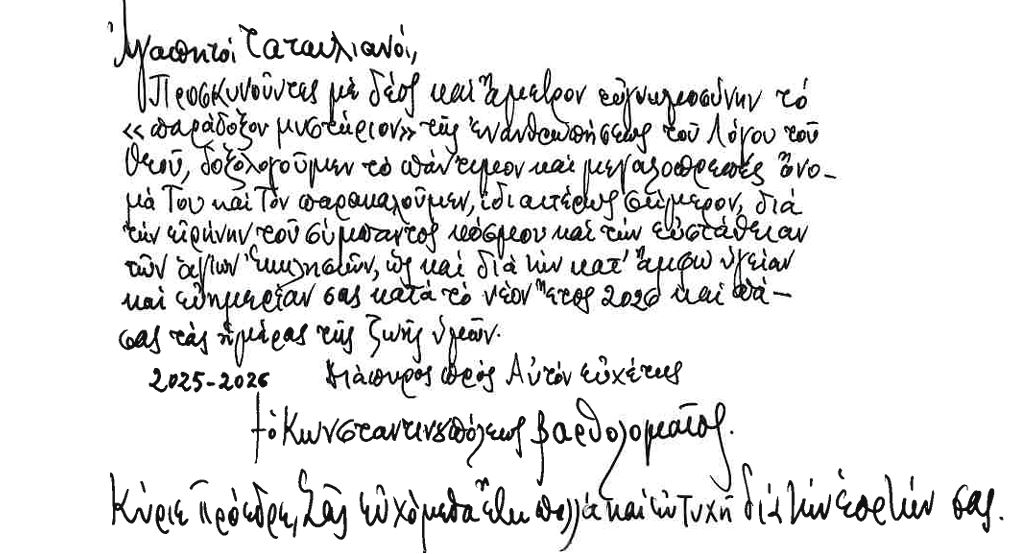 Ἀγαπητοί Ταταυλιανοί,
Προσκυνοῦντες μέ δέος καί ἄμετρον εὐγνωμοσύνην τό
«παράδοξον μυστήριον» τῆς ἐνανθρωπήσεως τοῦ Λόγου τοῦ
Θεοῦ, δοξολογοῦμεν τό πάντιμον καί μεγαλοπρεπές ὄνο-
μά Του καί Τόν παρακαλοῦμεν, ἰδιαιτέρως σήμερον, διά
τήν εἰρήνην τοῦ σύμπαντος κόσμου καί τήν εὐστάθειαν
τῶν ἁγίων Ἐκκλησιῶν, ὡς καί διά τήν κατ' ἄμφω ὑγείαν
καί εὐημερίαν σας κατά τό νέον ἔτος 2026 καί πά-
σας τάς ἡμέρας τῆς ζωῆς ὑμῶν.
2025-2026 Διάπυρος πρός Αὐτόν εὐχέτης
† ὁ Κωνσταντινουπόλεως Βαρθολομαῖος.
Κύριε Πρόεδρε, Σᾶς εὐχόμεθα ἔτη πολλά καί εὐτυχῆ διά τήν ἑορτήν σας.